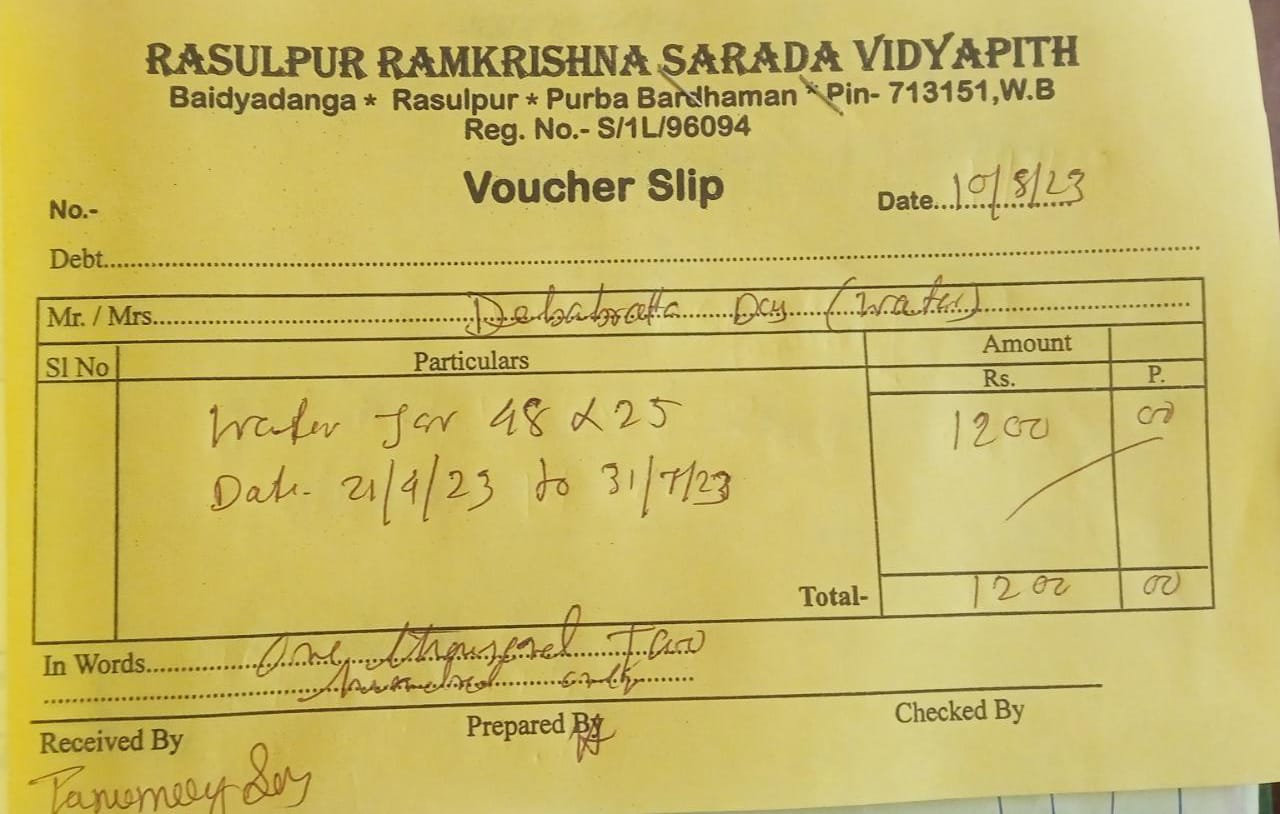 RASULPUR RAMKRISHNA SARADA VIDYAPITH
Baidyadanga * Rasulpur * Purba Bardhaman * Pin- 713151,W.B
Reg. No.- S/1L/96094
Voucher Slip
No.-
Date...10/8/23
Debt.
Mr. / Mrs. Debabratta Dey (Water)
Sl No Particulars Amount
Rs. P.
Water Jar 48 x 25 1200 00
Date- 21/4/23 to 31/7/23
Total- 1200 00
In Words. One thousand Two
hundred only
Received By Prepared By Checked By